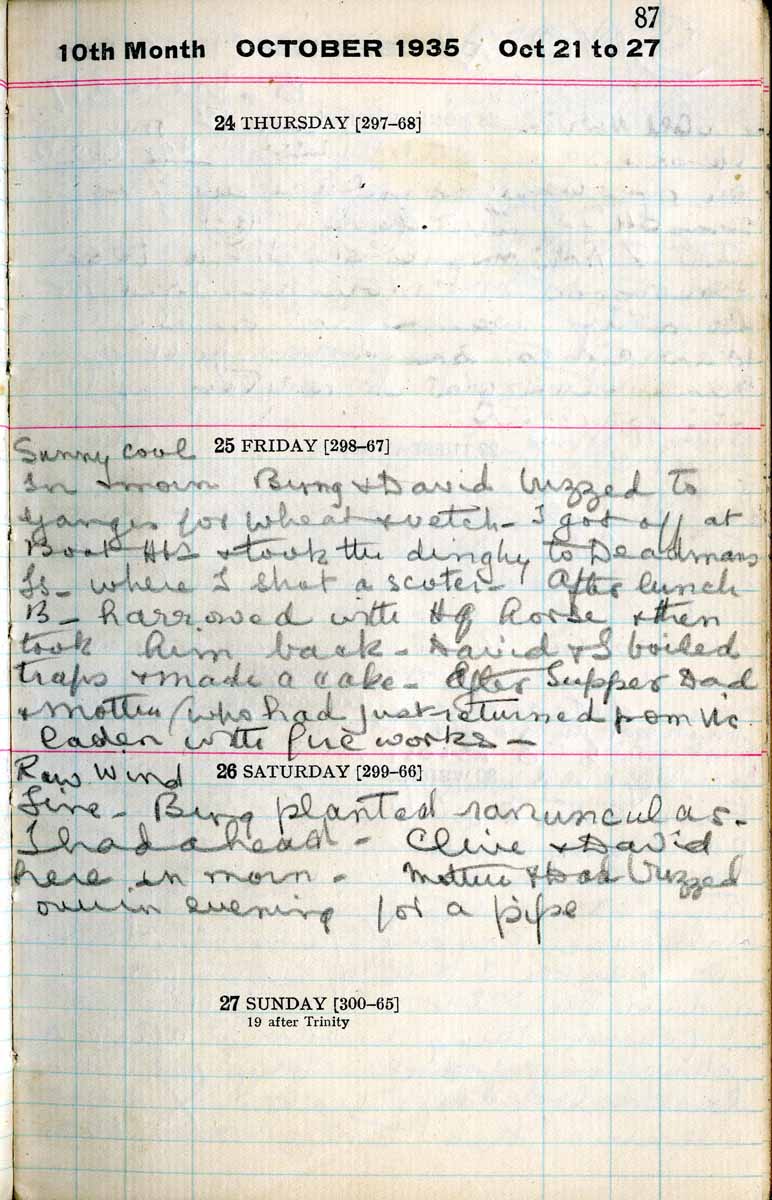 87
10th Month OCTOBER 1935 Oct 21 to 27
24 THURSDAY [297–68]
Sunny cool 25 FRIDAY [298–67]
In morn Bung & David buzzed to
Ganges for wheat & vetch – I got off at
Boat Hs & took the dinghy to Deadmans
Is – where I shot a scoter – After lunch
B – harrowed with horse & then
took him back – David & I boiled
traps & made a cake – After Supper Dad
& Mother (who had just returned from Vic
laden with fire works –
Raw Wind 26 SATURDAY [299–66]
Fine – Bung planted ranunculas –
I had a head – Clive & David
here in morn – Mother & Dad buzzed
over in evening for a pipe
27 SUNDAY [300–65]
19 after Trinity